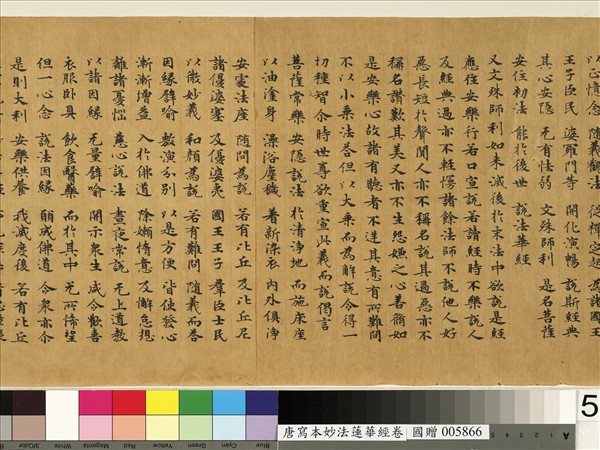 以正憶念 隨義觀法 從禪定起 為諸國王
王子臣民 婆羅門等 開化演暢 說斯經典
其心安隱 无有怯弱 文殊師利 是名菩薩
安住初法 能於後世 說法華經
又文殊師利如來滅後於末法中欲說是經
應住安樂行若口宣說若讀經時不樂說人
及經典過亦不輕慢諸餘法師不說他人好
惡長短於聲聞人亦不稱名說其過惡亦不
稱名讚歎其美又亦不生怨嫌之心善脩如
是安樂心故諸有聽者不逆其意有所難問
不以小乘法答但以大乘而為解說令得一
切種智尒時世尊欲重宣此義而說偈言
菩薩常樂 安隱說法 於清淨地 而施床座
以油塗身 澡浴塵穢 著新染衣 內外俱淨
安處法座 隨問為說 若有比丘 及比丘尼
諸優婆塞 及優婆夷 國王王子 羣臣士民
以微妙義 和顏為說 若有難問 隨義而答
因緣譬喻 敷演分別 以是方便 皆使發心
漸漸增益 入於佛道 除嬾惰意 及懈怠想
離諸憂惱 慈心說法 晝夜常說 无上道教
以諸因緣 无量譬喻 開示衆生 咸令歡喜
衣服臥具 飲食醫藥 而於其中 无所悕望
但一心念 說法因緣 願成佛道 令衆亦尒
是則大利 安樂供養 我滅度後 若有比丘
3/Color White Magenta Red Yellow Green Cyan Blue
唐寫本妙法蓮華經卷 國贈 005866
A 5